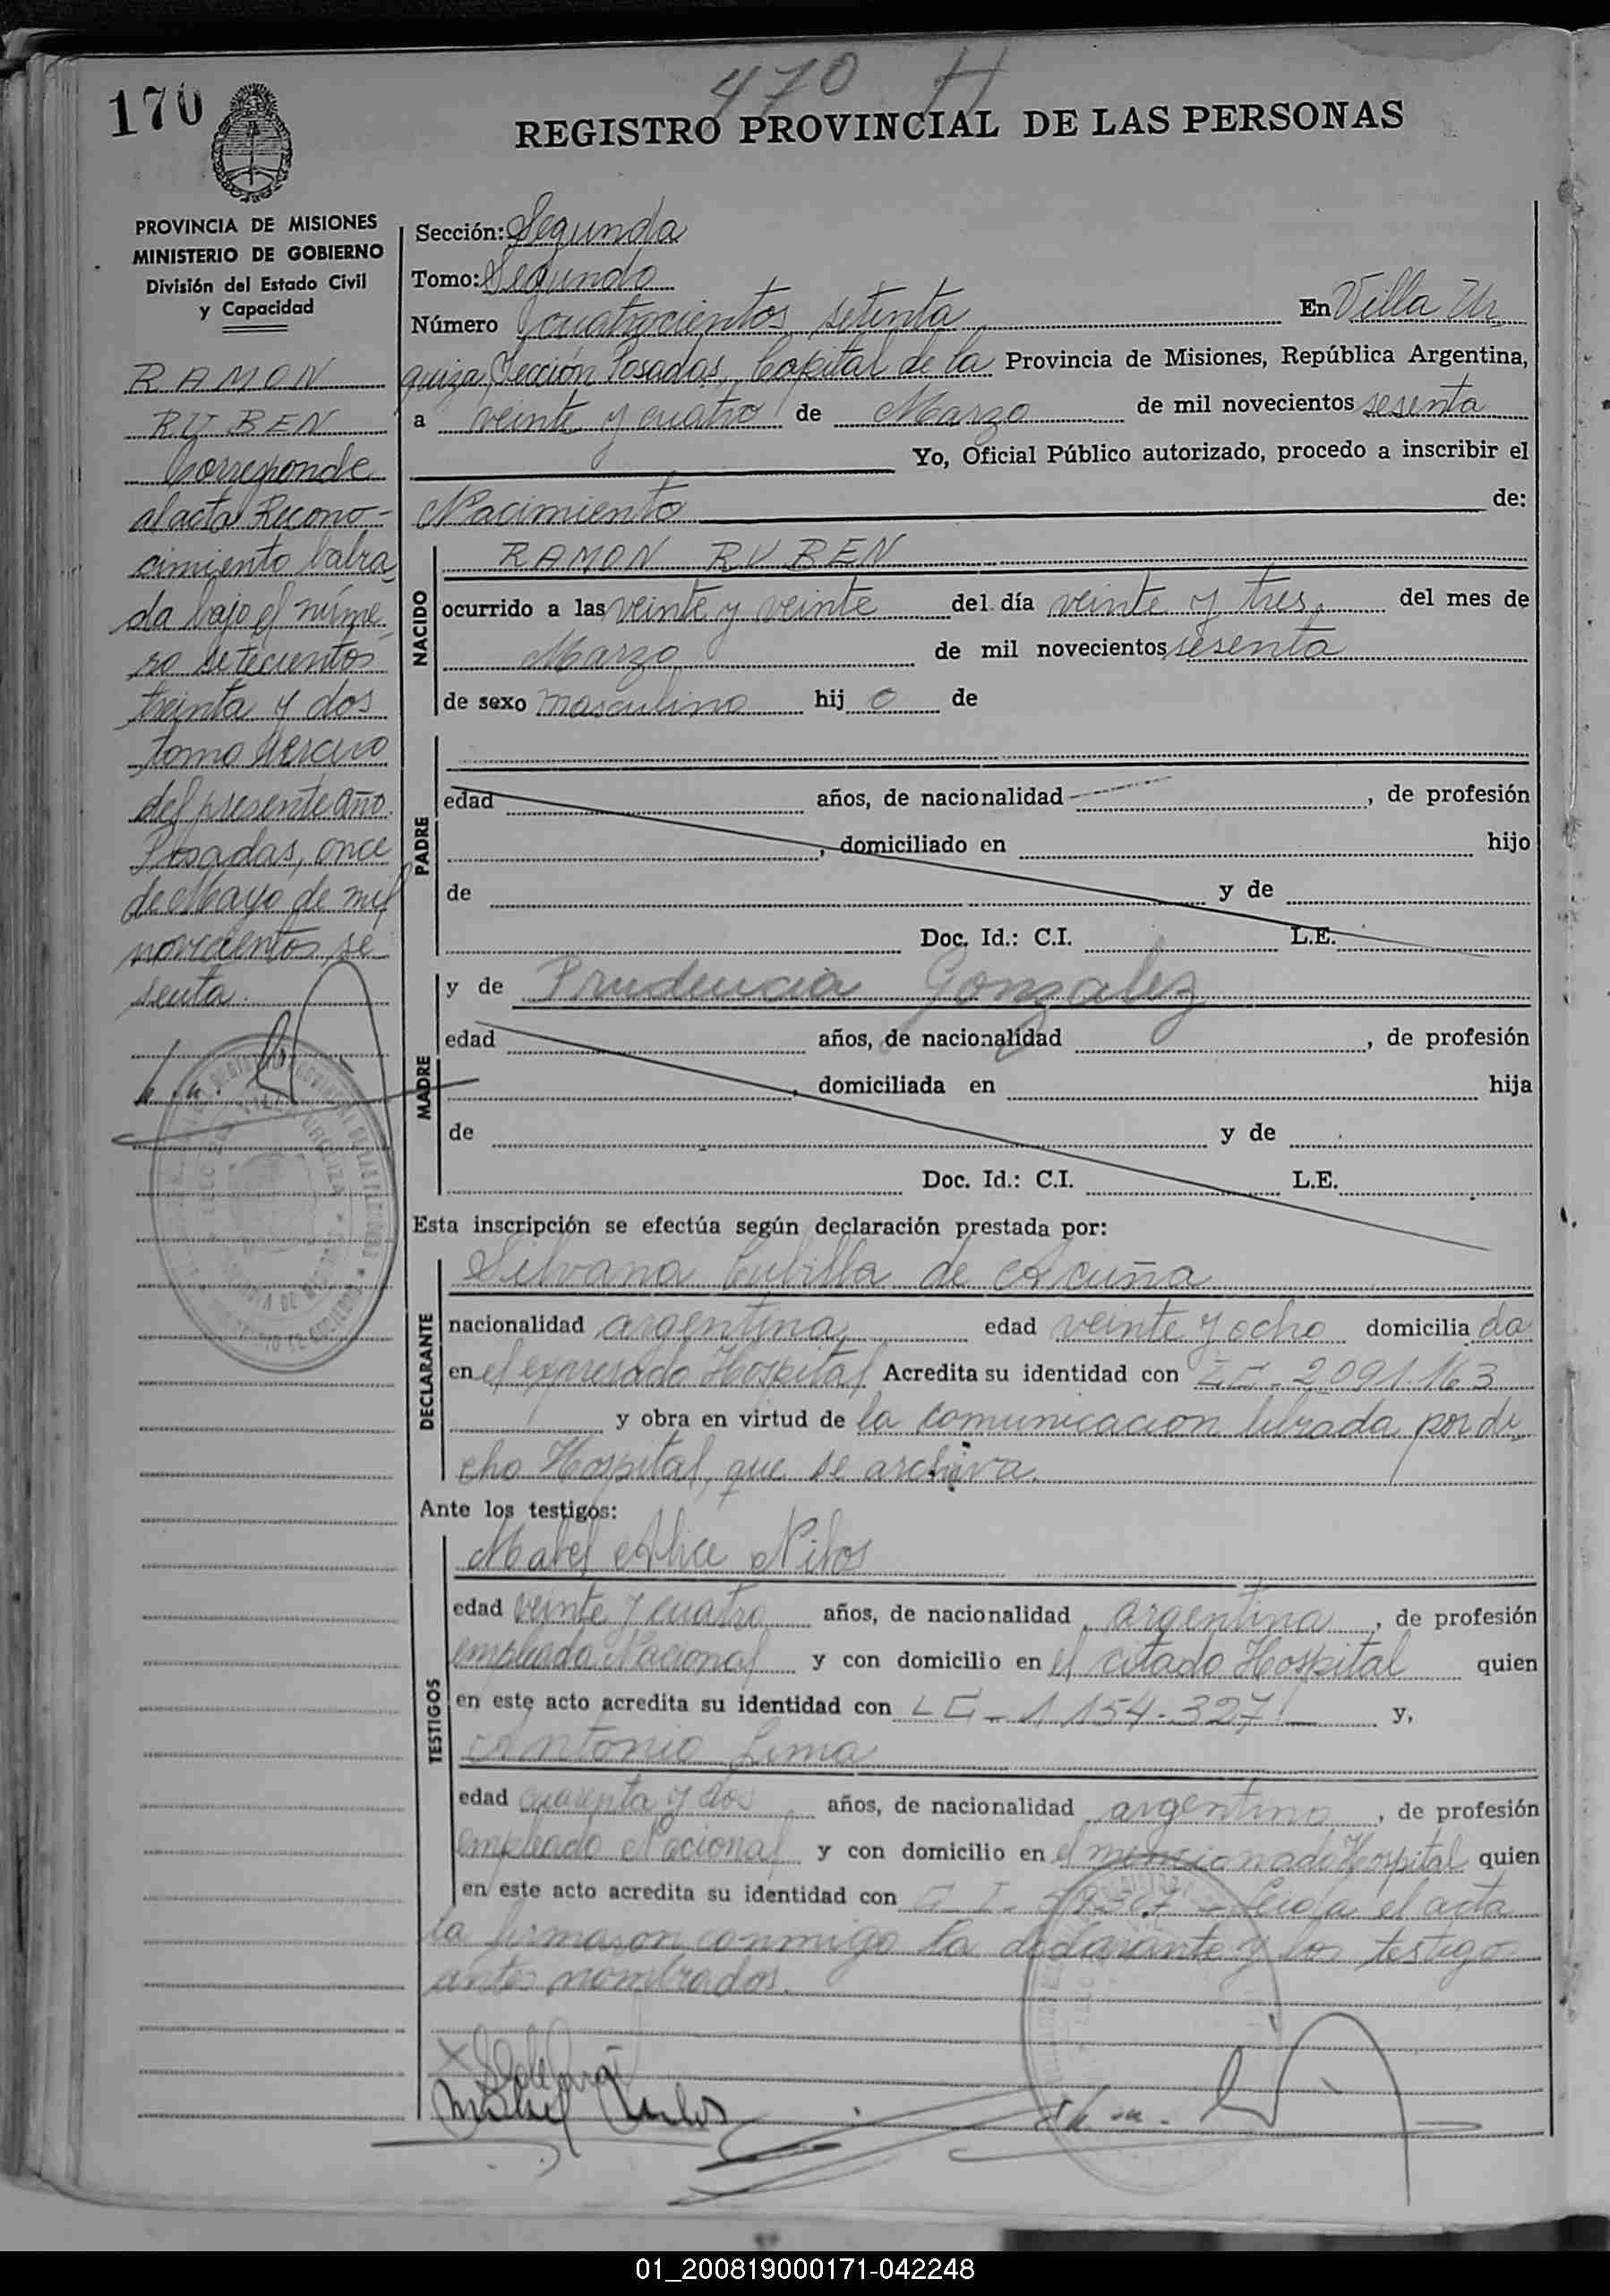 470 H
170
REGISTRO PROVINCIAL DE LAS PERSONAS
PROVINCIA DE MISIONES
MINISTERIO DE GOBIERNO
División del Estado Civil
y Capacidad
RAMON
RUBEN
Corresponde
al acta Recono-
cimiento labra
da bajo el núme
ro setecientos
treinta y dos
tomo tercero
del presente año.
Posadas, once
de Mayo de mil
novecientos se
senta.
Sección: Segunda
Tomo: Segundo
Número cuatrocientos setenta En Villa Ur
quiza, Sección Posadas, Capital de la Provincia de Misiones, República Argentina,
a veinte y cuatro de Marzo de mil novecientos sesenta
Yo, Oficial Público autorizado, procedo a inscribir el
Nacimiento de:
NACIDO
RAMON RUBEN
ocurrido a las veinte y veinte del día veinte y tres, del mes de
Marzo de mil novecientos sesenta
de sexo masculino hij o de
PADRE
edad años, de nacionalidad , de profesión
, domiciliado en hijo
de y de
Doc. Id.: C.I. L.E.
MADRE
y de Prudencia Gonzalez
edad años, de nacionalidad , de profesión
, domiciliada en hija
de y de
Doc. Id.: C.I. L.E.
Esta inscripción se efectúa según declaración prestada por:
DECLARANTE
Silvana Cubilla de Acuña
nacionalidad argentina, edad veinte y ocho domicilia da
en el expresado Hospital Acredita su identidad con 2.091.163
y obra en virtud de la comunicacion librada por di
cho Hospital, que se archiva.
Ante los testigos:
TESTIGOS
Mabel Alice
edad veinte y cuatro años, de nacionalidad argentina, de profesión
empleada Nacional y con domicilio en el citado Hospital quien
en este acto acredita su identidad con LC - 1.154.327 y,
Antonio Lima
edad cuarenta y dos años, de nacionalidad argentino, de profesión
empleado Nacional y con domicilio en el mencionado Hospital quien
en este acto acredita su identidad con C.I. Leida el acta
la firmaron conmigo la declarante y los testigo
antes nombrados.
01_200819000171-042248